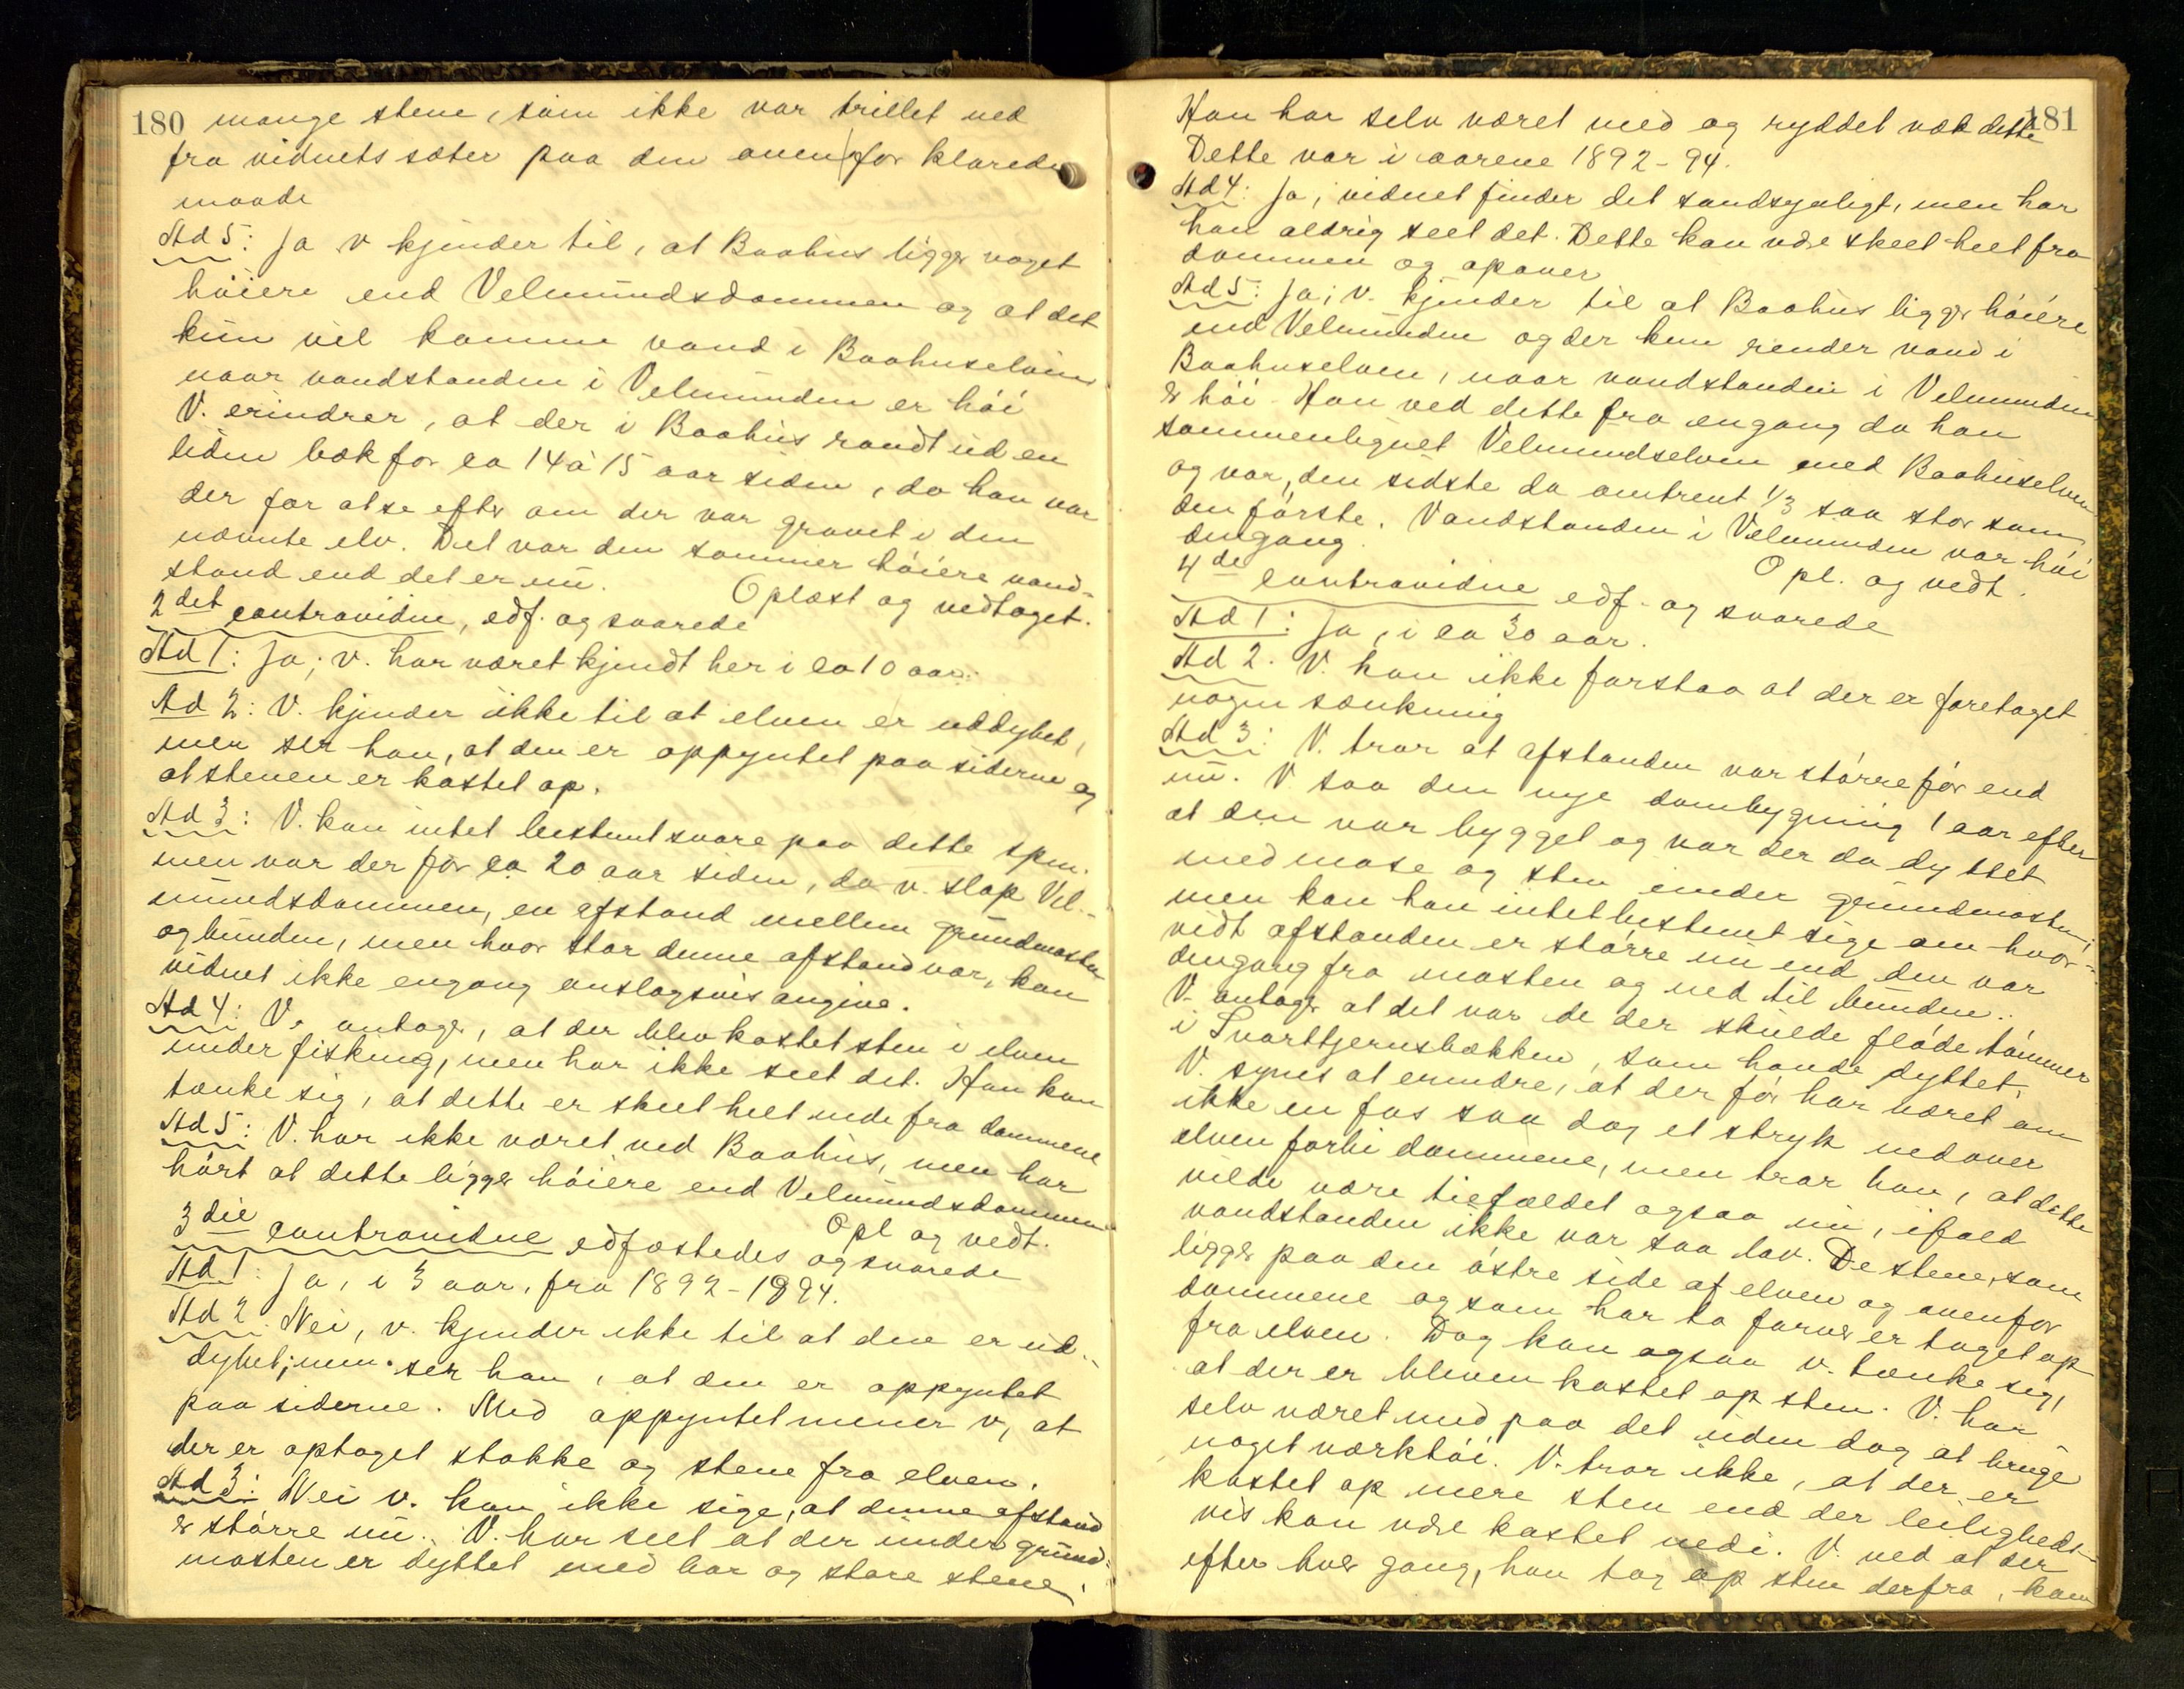 180 mange stene, som ikke var trillet ned
fra vidnets sæter paa den ovenfor klarede
maade
Ad 5: Ja v kjender til, at Baahus ligger noget
høiere end Velmundsdammen og at det
kun vil komme vand i Baahuselven
naar vandstanden i Velmunden er høi
V. erindrer, at der i Baahus randt ud en
liden bæk for ca 14 à 15 aar siden, da han var
der for at se efter om der var gravet i den
nævnte elv. Det var den sommer høiere vand-
stand end det er nu.
Oplæst og vedtaget.
2det contravidne, edf. og svarede
Ad 1: Ja; v. har været kjendt her i ca 10 aar.
Ad 2: V. kjender ikke til at elven er uddybet,
men ser han, at den er oppyntet paa siderne og
at stenen er kastet op.
Ad 3: V. kan intet bestemt svare paa dette spm.
men var der for ca 20 aar siden, da v. slap Vel-
mundsdammen, en afstand mellem grundmosten
og bunden, men hvor stor denne afstand var, kan
vidnet ikke engang anslagsvis angive.
Ad 4: V. antager, at der blev kastet sten i elven
under fisking, men har ikke seet det. Han kan
tænke sig, at dette er skeet helt nede fra dammene
Ad 5: V. har ikke været ved Baahus, men har
hørt at dette ligger høiere end Velmundsdammen
Opl og vedt.
3die contravidne edfæstedes og svarede
Ad 1: Ja, i 3 aar, fra 1892-1894.
Ad 2. Nei, v. kjender ikke til at den er ud-
dybet; men ser han, at den er oppyntet
paa siderne. Med oppyntet mener v, at
der er optaget stokke og stene fra elven.
Ad 3: Nei v. kan ikke sige, at denne afstand
er større nu. V. har seet at der under grund-
mosten er dyttet med bar og store stene.
181
Han har selv været med og ryddet væk dette
Dette var i aarene 1892-94.
Ad 4: Ja; vidnet finder det sandsynligt, men har
han aldrig seet det. Dette kan være skeet heelt fra
dammen og opover
Ad 5: Ja; v. kjender til at Baahus ligger høiere
end Velmunden og der kun render vand i
Baahuselven, naar vandstanden i Velmunden
er høi. Han ved dette fra engang da han
sammenlignet Velmundselven med Baahuselven
og var, den sidste da omtrent 1/3 saa stor som
den første. Vandstanden i Velmunden var høi
dengang.
Opl. og vedt.
4de contravidne edf. og svarede
Ad 1: Ja, i ca 30 aar.
Ad 2. V. kan ikke forstaa at der er foretaget
nogen sænkning
Ad 3: V. tror at afstanden var større før end
nu. V saa den nye dambygning 1 aar efter
at den var bygget og var der da dyttet
med mose og sten under grundmosten;
men kan han intet bestemt sige om hvor-
vidt afstanden er større nu end den var
dengang fra mosten og ned til bunden.
V. antager at det var de der skulde fløde tømmer
i Svarttjernsbækken, som havde dyttet.
V. synes at erindre, at der før har været om
ikke en fos saa dog et stryk nedover
elven forbi dammene, men tror han, at dette
vilde være tilfældet ogsaa nu, ifald
vandstanden ikke var saa lav. De stene, som
ligger paa den østre side af elven og ovenfor
dammene og som har to farver er taget op
fra elven. Dog kan ogsaa v. tænke sig,
at der er bleven kastet op sten. V. har
selv været med paa det uden dog at bruge
noget værktøi. V. tror ikke, at der er
kastet op mere sten end der leiligheds-
vis kan være kastet nedi. V. ved at der
efter hver gang, han tog op sten derfra, kom